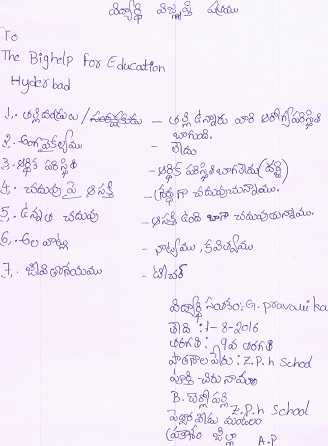 విద్యార్థి విజ్ఞప్తి పత్రము
To
The Bighelp For Education
Hyderbad
1. తల్లిదండ్రులు / సంరక్షకుడు - తల్లి ఉన్నారు వారి ఆరోగ్యపరిస్థితి
బాగుంది.
2. అంగవైకల్యము - లేదు
3. ఆర్థిక పరిస్థితి - ఆర్థిక పరిస్థితి బాగలేదు
4. చదువు పై ఆసక్తి - శ్రద్ధగా చదువుచున్నాము.
5. ఉన్నత చదువు - ఆసక్తి ఉంది బాగా చదువుచున్నాము.
6. అలవాట్లు - నాట్యము, కవిత్వము
7. జీవితాశయము - టీచర్
విద్యార్థి సంతకం: G. pravalika
తేది : 1-8-2016
తరగతి : 9వ తరగతి
పాఠశాల పేరు : Z.P.h School
పూర్తి చిరునామా
B. చెర్లోపల్లి
Z.P.h School
మండలం
ప్రకాశం జిల్లా A.P